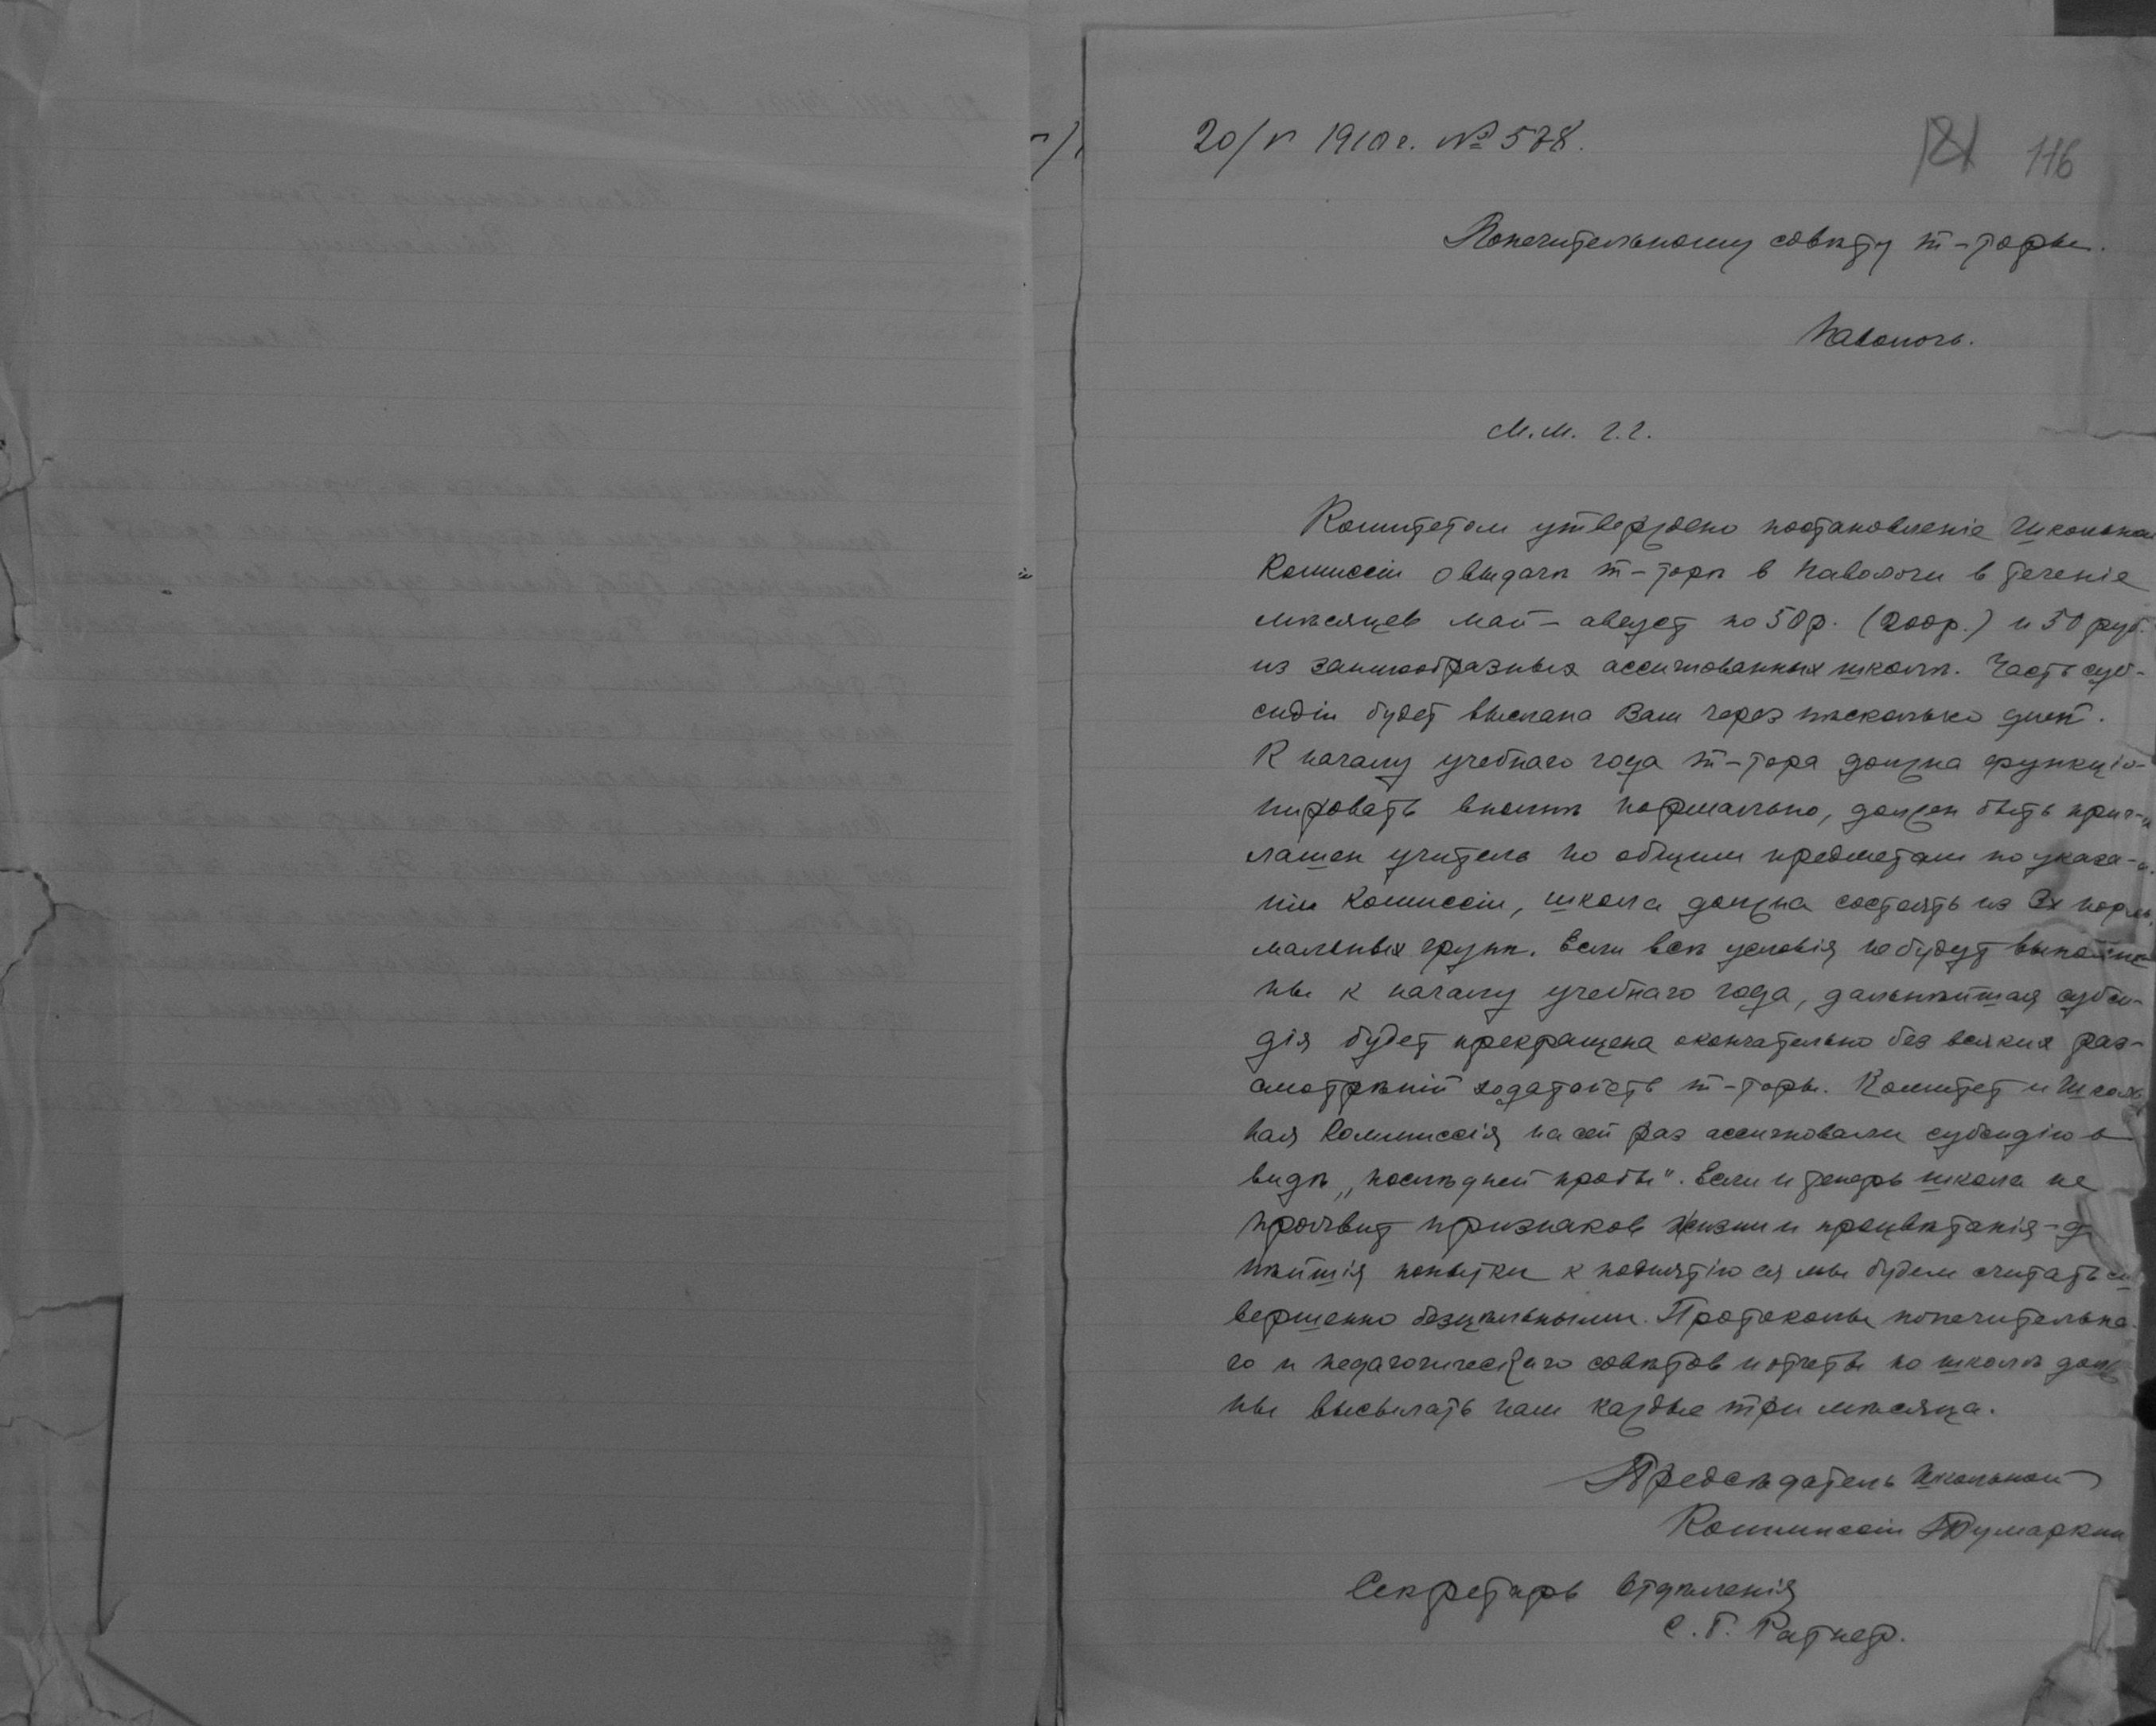 20/V 1910 г. № 578.
116
Попечительному совѣту т-торы.
Паволочь.
М.м. г.г.
Комитетом утверждено постановленіе Школьной
Комиссіи о выдачѣ т-торѣ в Паволочи в теченіе
мѣсяцев май – август по 50 р. (200 р.) и 50 руб.
из заимообразных ассигнованных школѣ. Часть суб-
сидіи будет выслана Вам через нѣсколько дней.
К началу учебнаго года т-тора должна функціо-
нировать вполнѣ нормально, должен быть приг-
лашен учитель по общим предметам по указа-
нію Комиссіи, школа должна состоять из 3х нор-
мальных групп. Если всѣ условія не будут выполне-
ны к началу учебнаго года, дальнѣйшая субси-
дія будет прекращена окончательно без всяких раз-
смотрѣній ходатайств т-торы. Комитет и Школь
ная Коммиссія на сей раз ассигновали субсидію в
видѣ „послѣдней пробы". Если и теперь школа не
проявит признаков жизни и процвѣтанія – д
нѣйшія попытки к поднятію ея мы будем считать со
вершенно безцѣльными. Протоколы попечительна-
го и педагогическаго совѣтов и отчеты по школѣ долж
ны высылать нам каждые три мѣсяца.
Предсѣдатель Школьной
Коммиссіи Тумаркин
Секретарь Отдѣленія
С. Г. Ратнер.